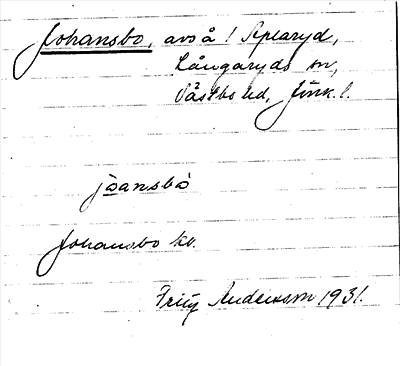 Johansbo, avs å 1 Spearyd,
Långaryds sn,
Västbo hd, Jönk. l.
joansbo
Johansbo kv.
Fritz Andersson 1931.